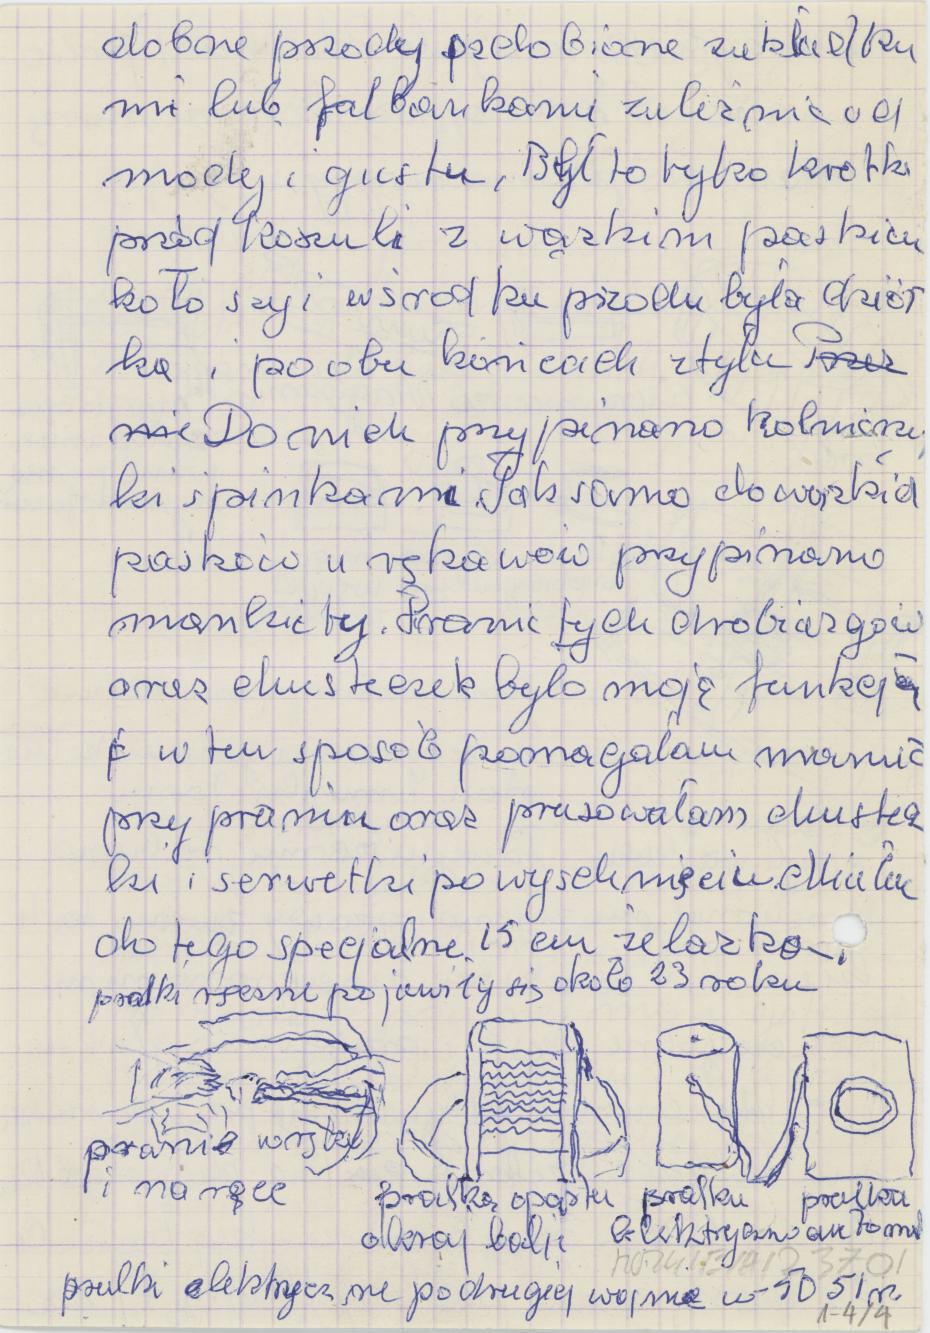 dobne przody ozdobione zakładka
mi lub falbankami zależnie od
mody i gustu, Był to tylko krótki
przód koszuli z wązkim paskiem
koło szyi wśrodku przodu była dziór
ka i po obu końcach ztyłu
Do nich przypinano kołnierzy
ki spinkami. Tak samo do wązkich
pasków u rękawów przypinano
mankiety. Pranie tych drobiazgów
oraz chusteczek było moją funkcją
w ten sposób pomagałam mamie
przy praniu oraz prasowałam chustecz
ki i serwetki po wyschnięciu. Miałam
do tego specjalne 15 cm żelazko.
pralki ręczne pojawiły się około 23 roku
pranie
i na ręce
pralka oparta pralka pralka
o brzeg balji elektryczna automat
pralki elektryczne po drugiej wojnie w 50 51 r.
1-4/4